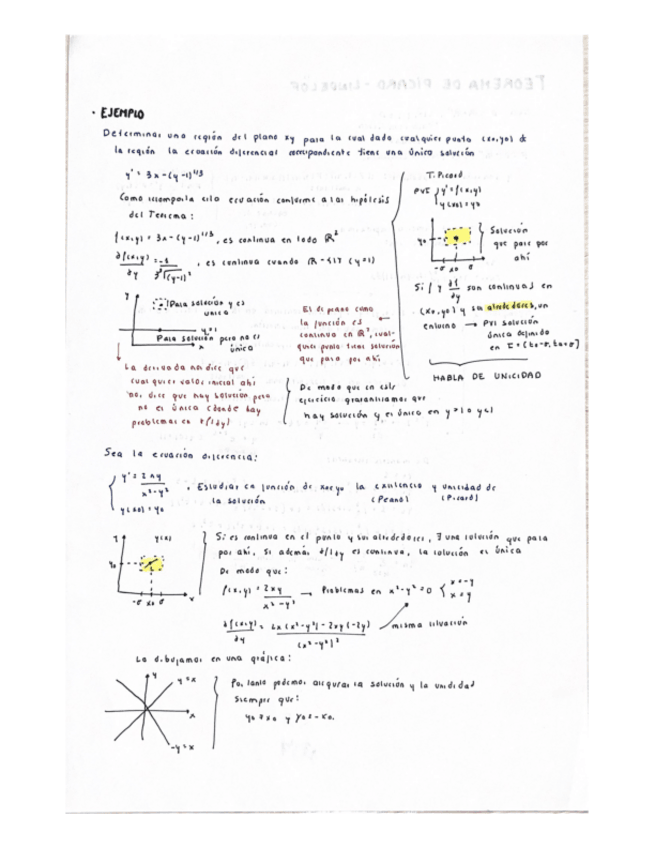 TEOREMA DE PICARD - LINDELÖF
· EJEMPLO
Determinar una región del plano xy para la cual dado cualquier punto (x0,y0) de
la región la ecuación diferencial correspondiente tiene una única solución
y' = 3x - (y-1)^1/3
Como incompleta esta ecuación conforme a las hipótesis
del Teorema:
f(x,y) = 3x - (y-1)^1/3, es continua en todo R²
∂f(x,y)/∂y = -1/3∛(y-1)², es continua cuando R-{1} (y=1)
y
Pasa solución y es
única
y=1
x
Pasa solución pero no es
única
La derivada nos dice que
cualquier valor inicial ahí
nos dice que hay solución pero
no es única (donde hay
problemas es ∂f/∂y)
El de peano como
la función es
continua en R², cual-
quier punto tiene solución
que pasa por ahí
De modo que en este
ejercicio garantizamos que
hay solución y es único en y>1 o y<1
T. Picard
PVI { y'=f(x,y)
y(x0)=y0
y0
-σ x0 σ
Solución
que pase por
ahí
Si f y ∂f/∂y son continuas en
(x0,y0) y sus alrededores, un
entorno → PVI solución
única definido
en I = (t0-σ, t0+σ)
HABLA DE UNICIDAD
Sea la ecuación diferencia:
{ y' = 2xy/x²-y²
y(x0) = y0
· Estudiar en función de x0 e y0 la existencia y unicidad de
la solución (Peano) (Picard)
y
y(x)
y0
-σ x0 σ x
Si es continua en el punto y sus alrededores, ∃ una solución que pasa
por ahí, si además ∂f/∂y es continua, la solución es única
De modo que:
f(x,y) = 2xy/x²-y² → Problemas en x²-y²=0 { x=-y
x=y
∂f(x,y)/∂y = 2x(x²-y²)-2xy(-2y)/(x²-y²)² misma situación
Lo dibujamos en una gráfica:
y
y=x
x
-y=x
Por tanto podemos asegurar la solución y la unicidad
siempre que:
y0≠x0 y y0≠-x0.